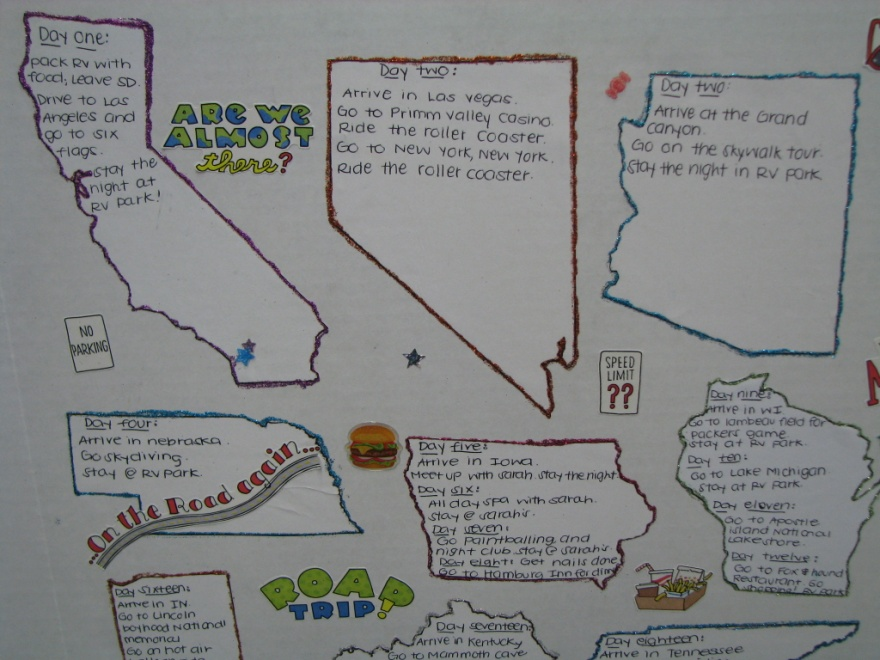 Day one:
pack RV with
food, Leave SD.
Drive to Los
Angeles and
go to six
flags.
stay the
night at
RV park!
ARE WE
ALMOST
there?
Day two:
Arrive in Las vegas.
Go to Primm valley casino.
Ride the roller coaster.
Go to New York, New York.
Ride the roller coaster.
Day two:
Arrive at the Grand
canyon.
Go on the skywalk tour.
Stay the night in RV park
NO
PARKING
SPEED
LIMIT
??
Day four:
Arrive in nebraska.
Go skydiving.
Stay @ RV park.
...On the Road again...
Day five:
Arrive in Iowa.
Meet up with sarah. stay the night.
Day six:
All day spa with sarah.
stay @ sarah's.
Day seven:
Go Paintballing and
night club. stay @ sarah's.
Day eight: Get nails done,
Go to Hamburg Inn for
Day nine:
Arrive in WI
Go to lambeau field for
packers game
stay at RV park.
Day ten:
Go to Lake Michigan
stay at RV Park.
Day eleven:
Go to Apostle
island National
Lakeshore.
Day twelve:
Go to Fox & hound
Restaurant Go
RV park
ROAD
TRIP!
Day sixteen:
Arrive in IN.
Go to Lincoln
boyhood National
memorial
Go on hot air
Day seventeen:
Arrive in Kentucky
Go to Mammoth cave
Day eighteen:
Arrive in Tennessee